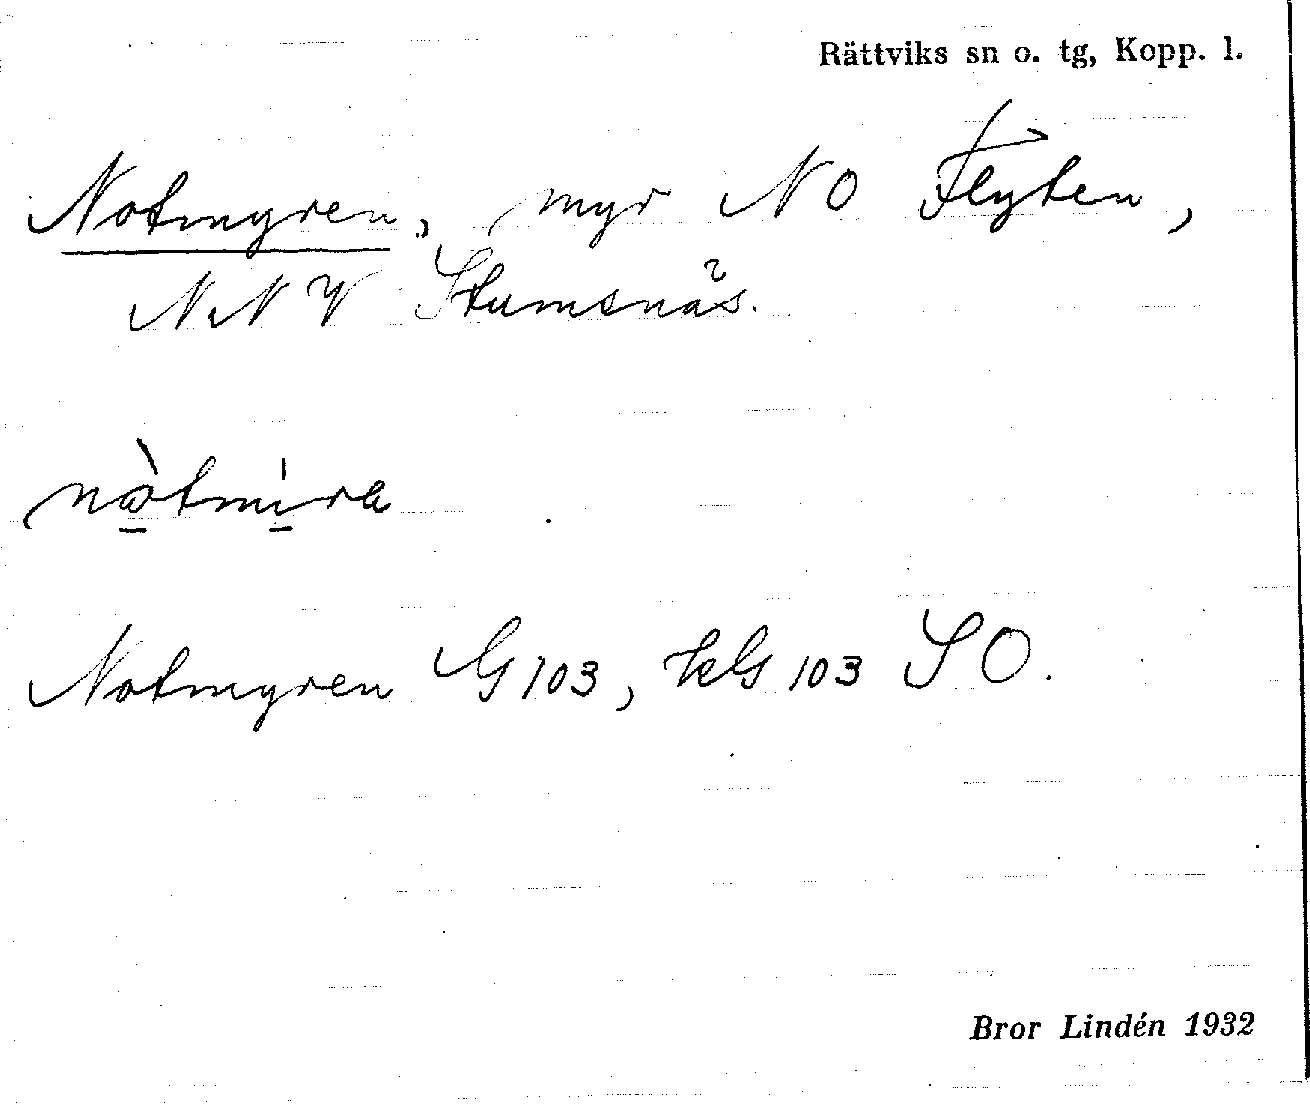 Rättviks sn o. tg, Kopp. l.
Notmyren, myr NO Flyten,
NNV Stumsnäs.
nòtmira
Notmyren G103, kG103 SO.
Bror Lindén 1932